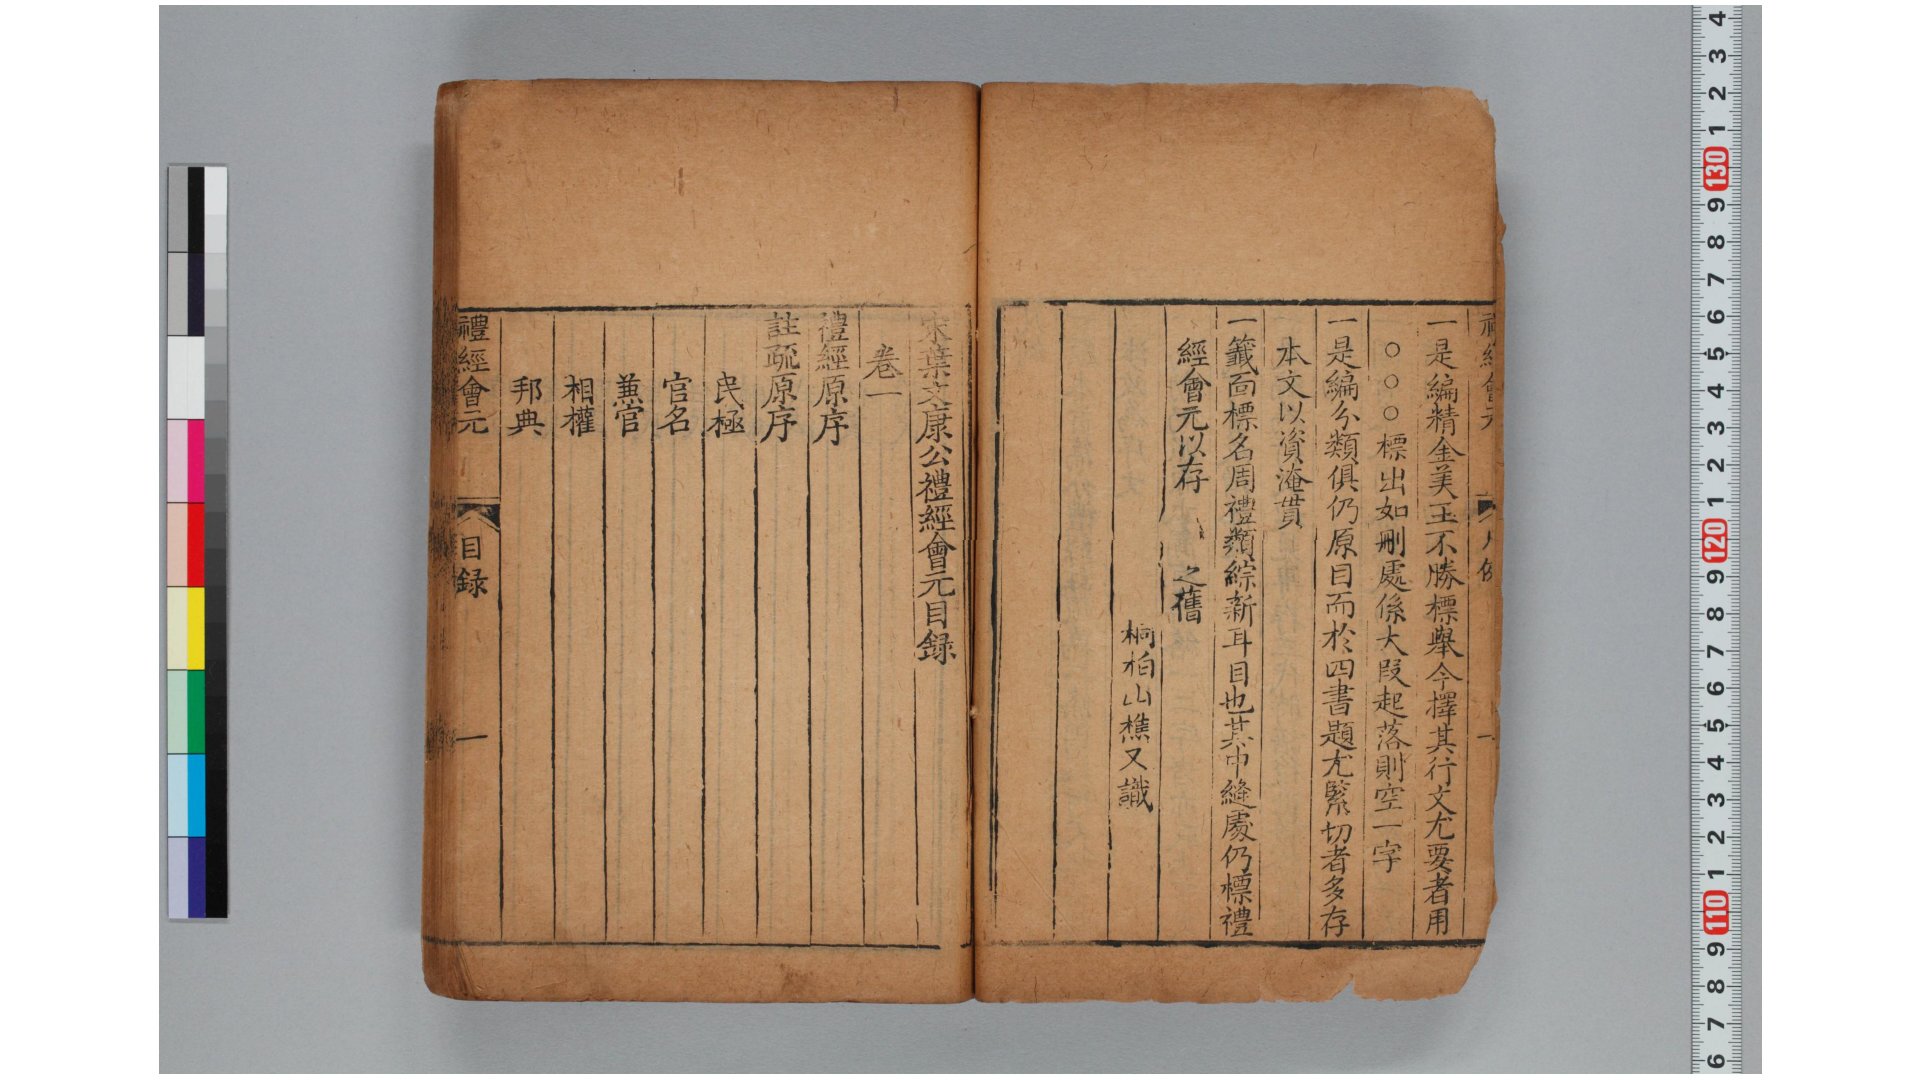 一是編精金美玉不勝標舉今擇其行文尤要者用
○○○標出如刪處係大段起落則空一字
一是編分類俱仍原目而於四書題尤緊切者多存
本文以資淹貫
一籤面標名周禮類綜新耳目也其中縫處仍標禮
經會元以存之舊
桐柏山樵又識
宋葉文康公禮經會元目錄
卷一
禮經原序
註疏原序
民極
官名
兼官
相權
邦典
禮經會元 目録 一
4
3
2
1
130
9
8
7
6
5
4
3
2
1
120
9
8
7
6
5
4
3
2
1
110
9
8
7
6